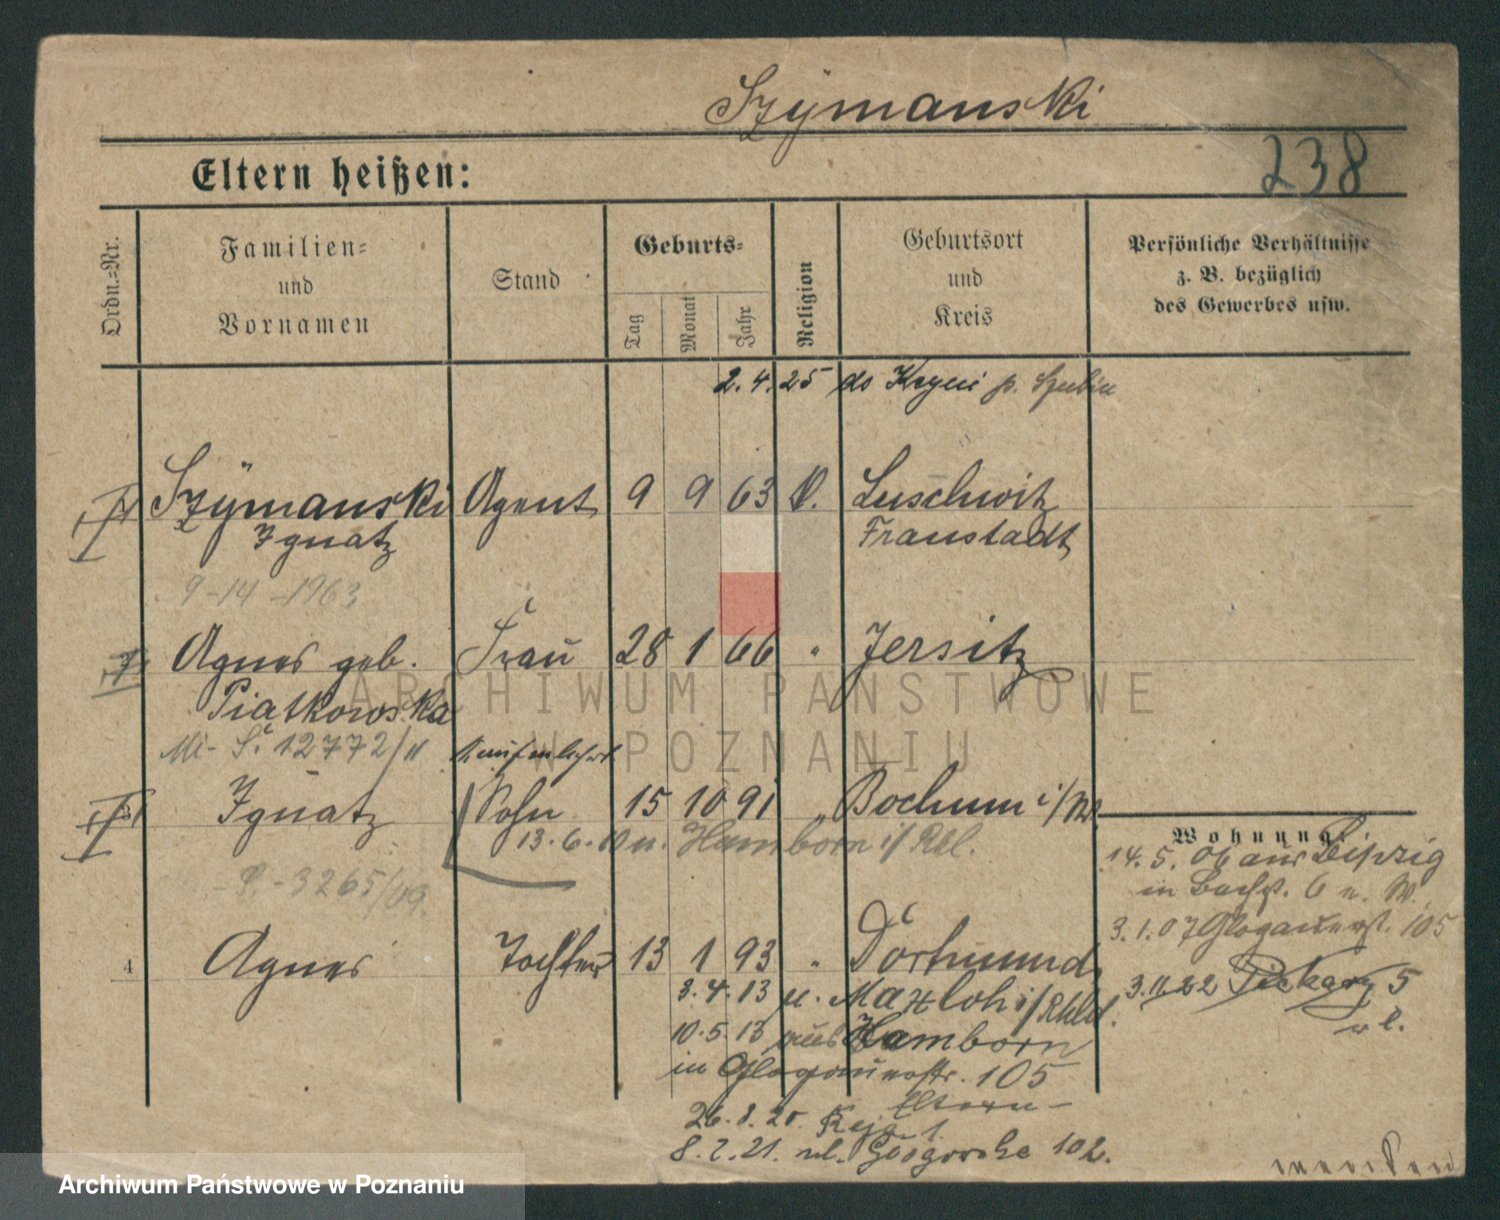 Szymanski
238
Eltern heißen:
Ordn.=Nr.
Familien=
und
Vornamen
Stand
Geburts=
Tag
Monat
Jahr
Religion
Geburtsort
und
Kreis
Persönliche Verhältnisse
z. B. bezüglich
des Gewerbes usw.
2.4.25 do Kcyni p. Szubin
Szymanski Agent 9 9 63 Luschwitz
Ignatz Fraustadt
9-14-1963
Agnes geb. Frau 28 1 66 " Jersitz
Piatkowska
12772/
Ignatz Sohn 15 10 91 " Bochum i/W.
13.6.10 n. Hamborn i/Rhl.
3265/09.
4 Agnes Tochter 13 1 93 " Dortmund
3.4.13 n. Marxloh i/Rhld.
10.5.13 aus Hamborn
in Glogauerstr. 105
Eltern
26.8.20.
8.2.21. ul. Głogowska 102.
Wohnung
14.5.06 aus Leipzig
in 6
3.1.07 Glogauerst. 105
3.11.22 Piekary 5
ARCHIWUM PAŃSTWOWE
W POZNANIU
Archiwum Państwowe w Poznaniu